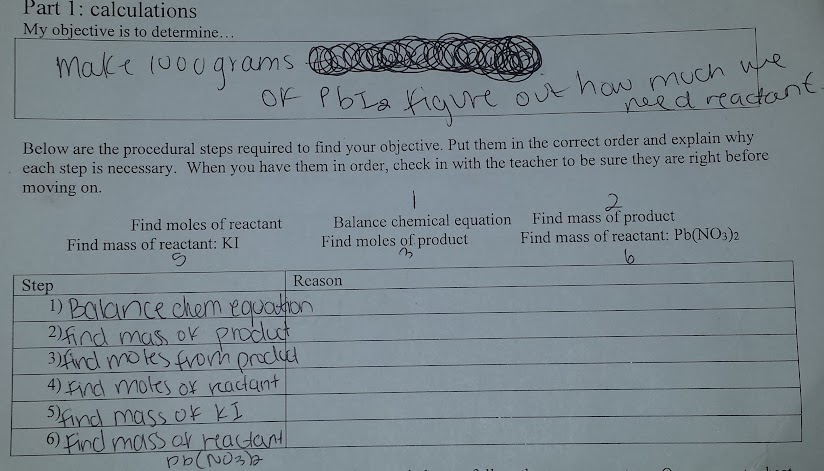 Part 1: calculations
My objective is to determine…
make 1000grams
of PbI2 figure out how much we
need reactant.
Below are the procedural steps required to find your objective. Put them in the correct order and explain why
each step is necessary. When you have them in order, check in with the teacher to be sure they are right before
moving on.
1 2
Find moles of reactant Balance chemical equation Find mass of product
Find mass of reactant: KI Find moles of product Find mass of reactant: Pb(NO3)2
5 3 6
Step Reason
1) Balance chem equation
2) find mass of product
3) find moles from product
4) find moles of reactant
5) find mass of KI
6) find mass of reactant
Pb(NO3)2